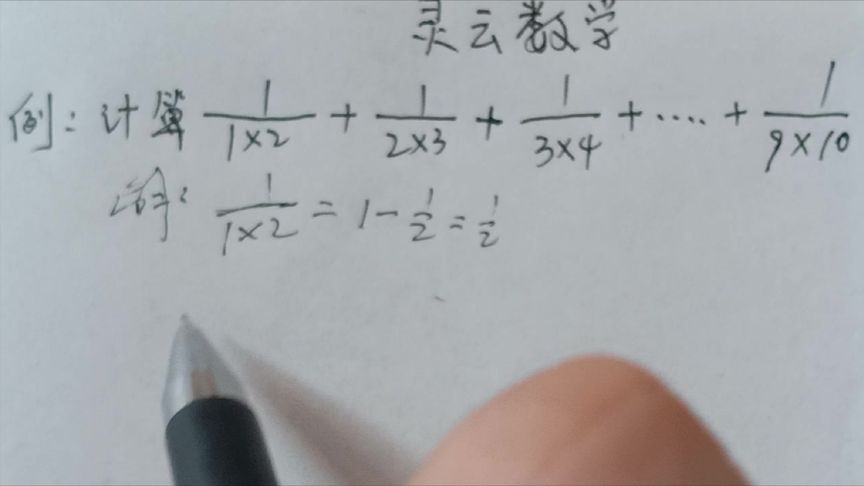 灵云数学
例：计算 1/1×2 + 1/2×3 + 1/3×4 + ···· + 1/9×10
解： 1/1×2 = 1 - 1/2 = 1/2